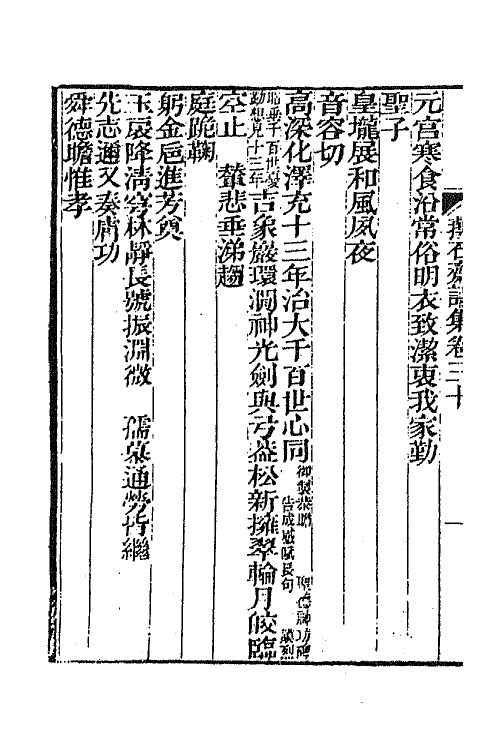 蘀石齋詩集卷三十　一
元宫寒食沿常俗明衣致潔衷我家勤
聖子
皇壠展和風夙夜
音容切
高深化澤充十三年治大千百世心同御製恭瞻　聖德神功碑告成感賦長句　謨烈
昭垂千百世憂勤想見十三年吉象巖環澗神光劍與弓葢松新擁翠輪月皎臨
空止　輦悲垂涕趨
庭跪鞠
躬金巵進芳奠
玉扆降清穹林靜長號振淵微　孺慕通勞皆繼
先志邇又奏膚功
舜德瞻惟孝